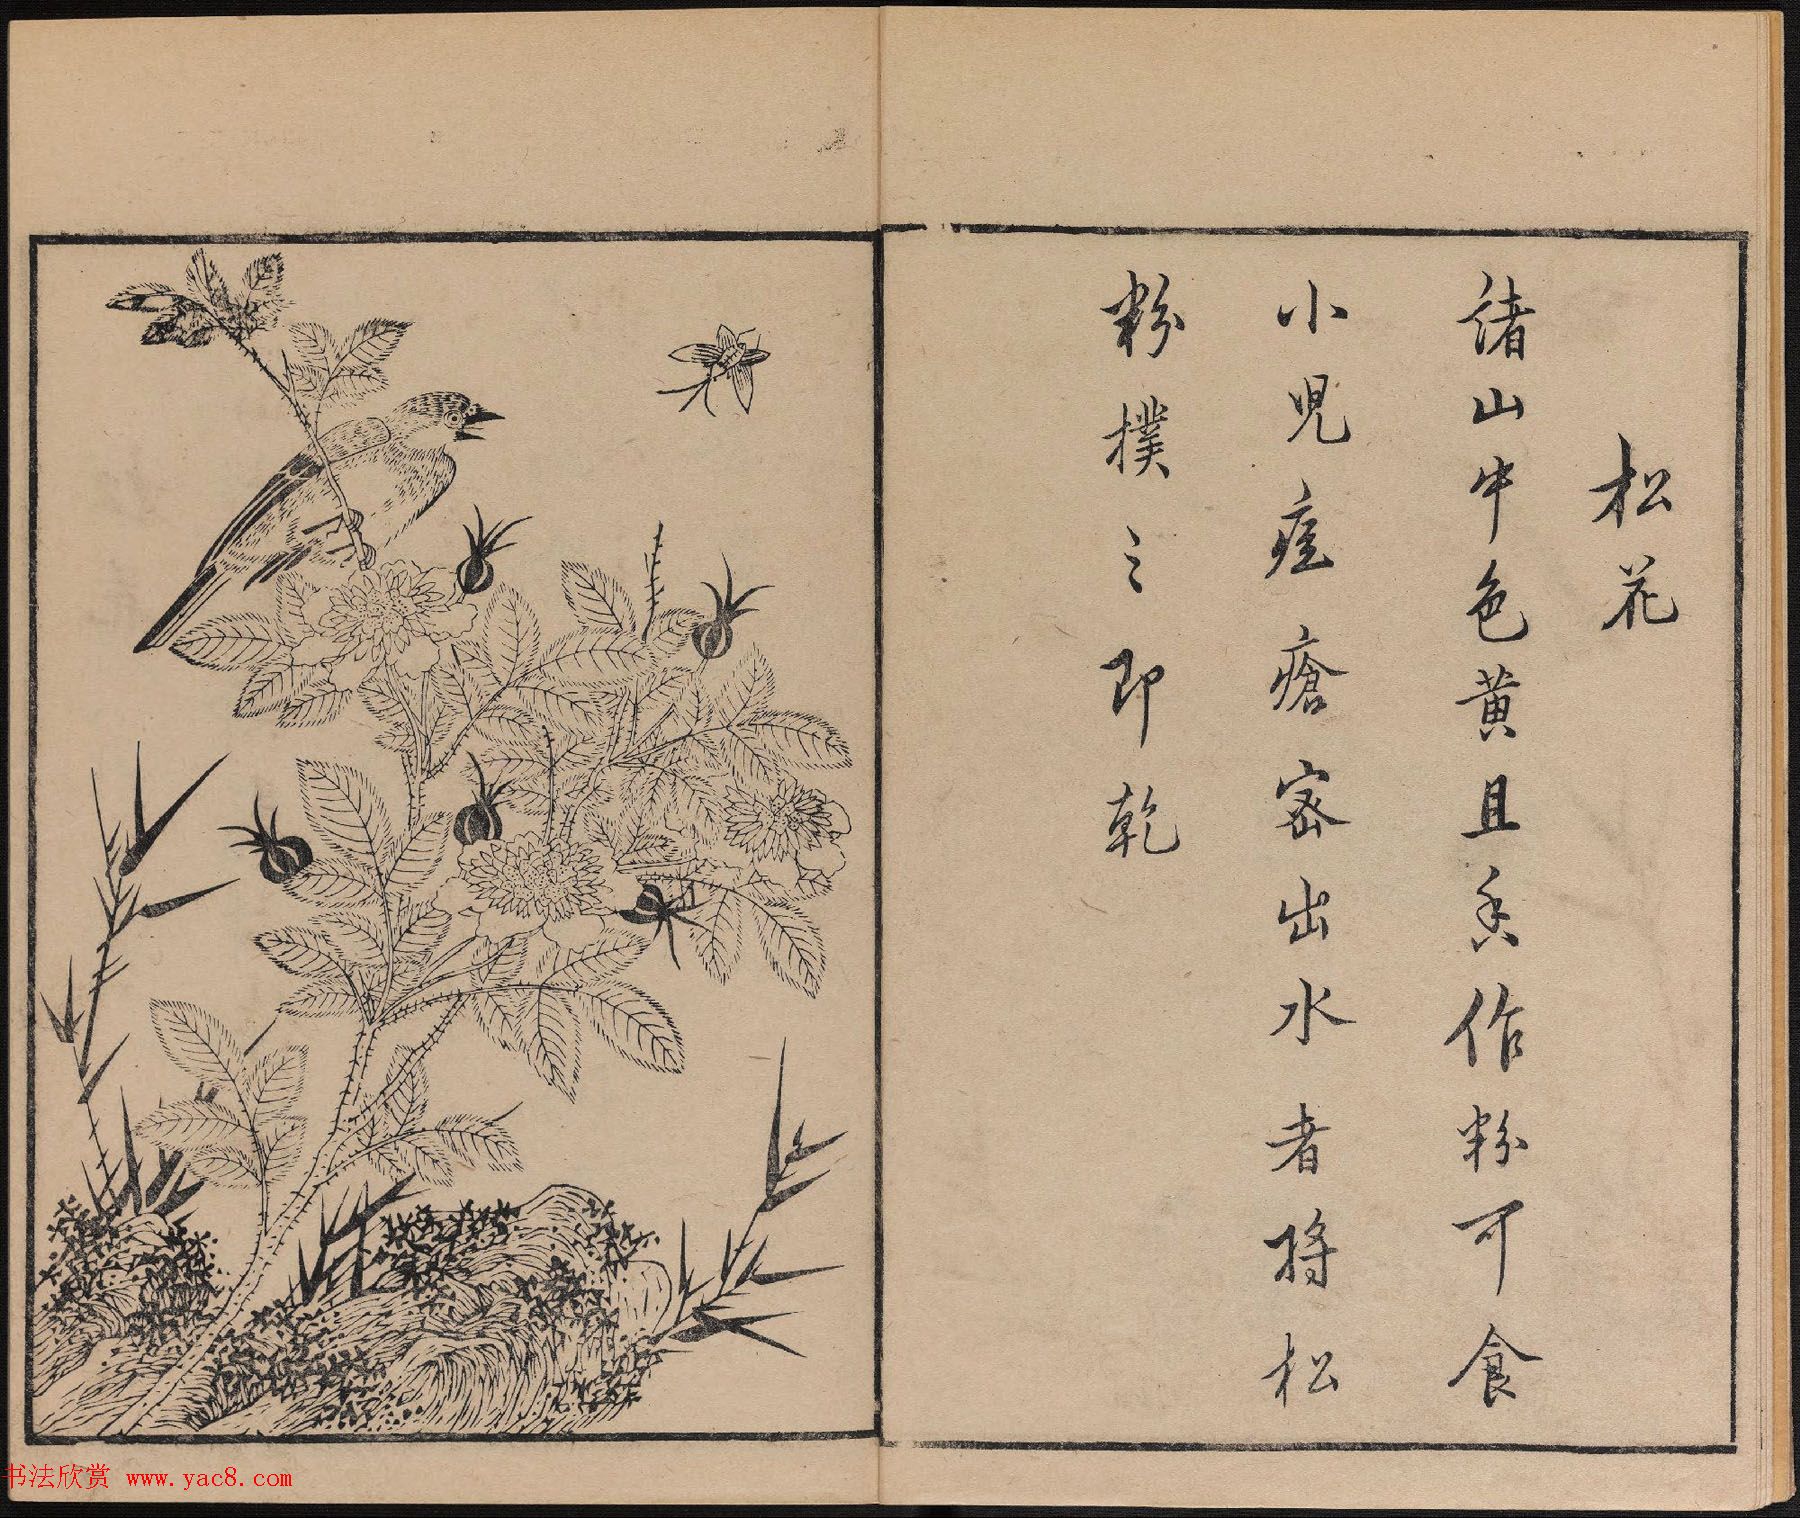 松花
諸山中色黄且香作粉可食
小児痘瘡密出水者将松
粉撲之即乾
书法欣赏 www.yac8.com